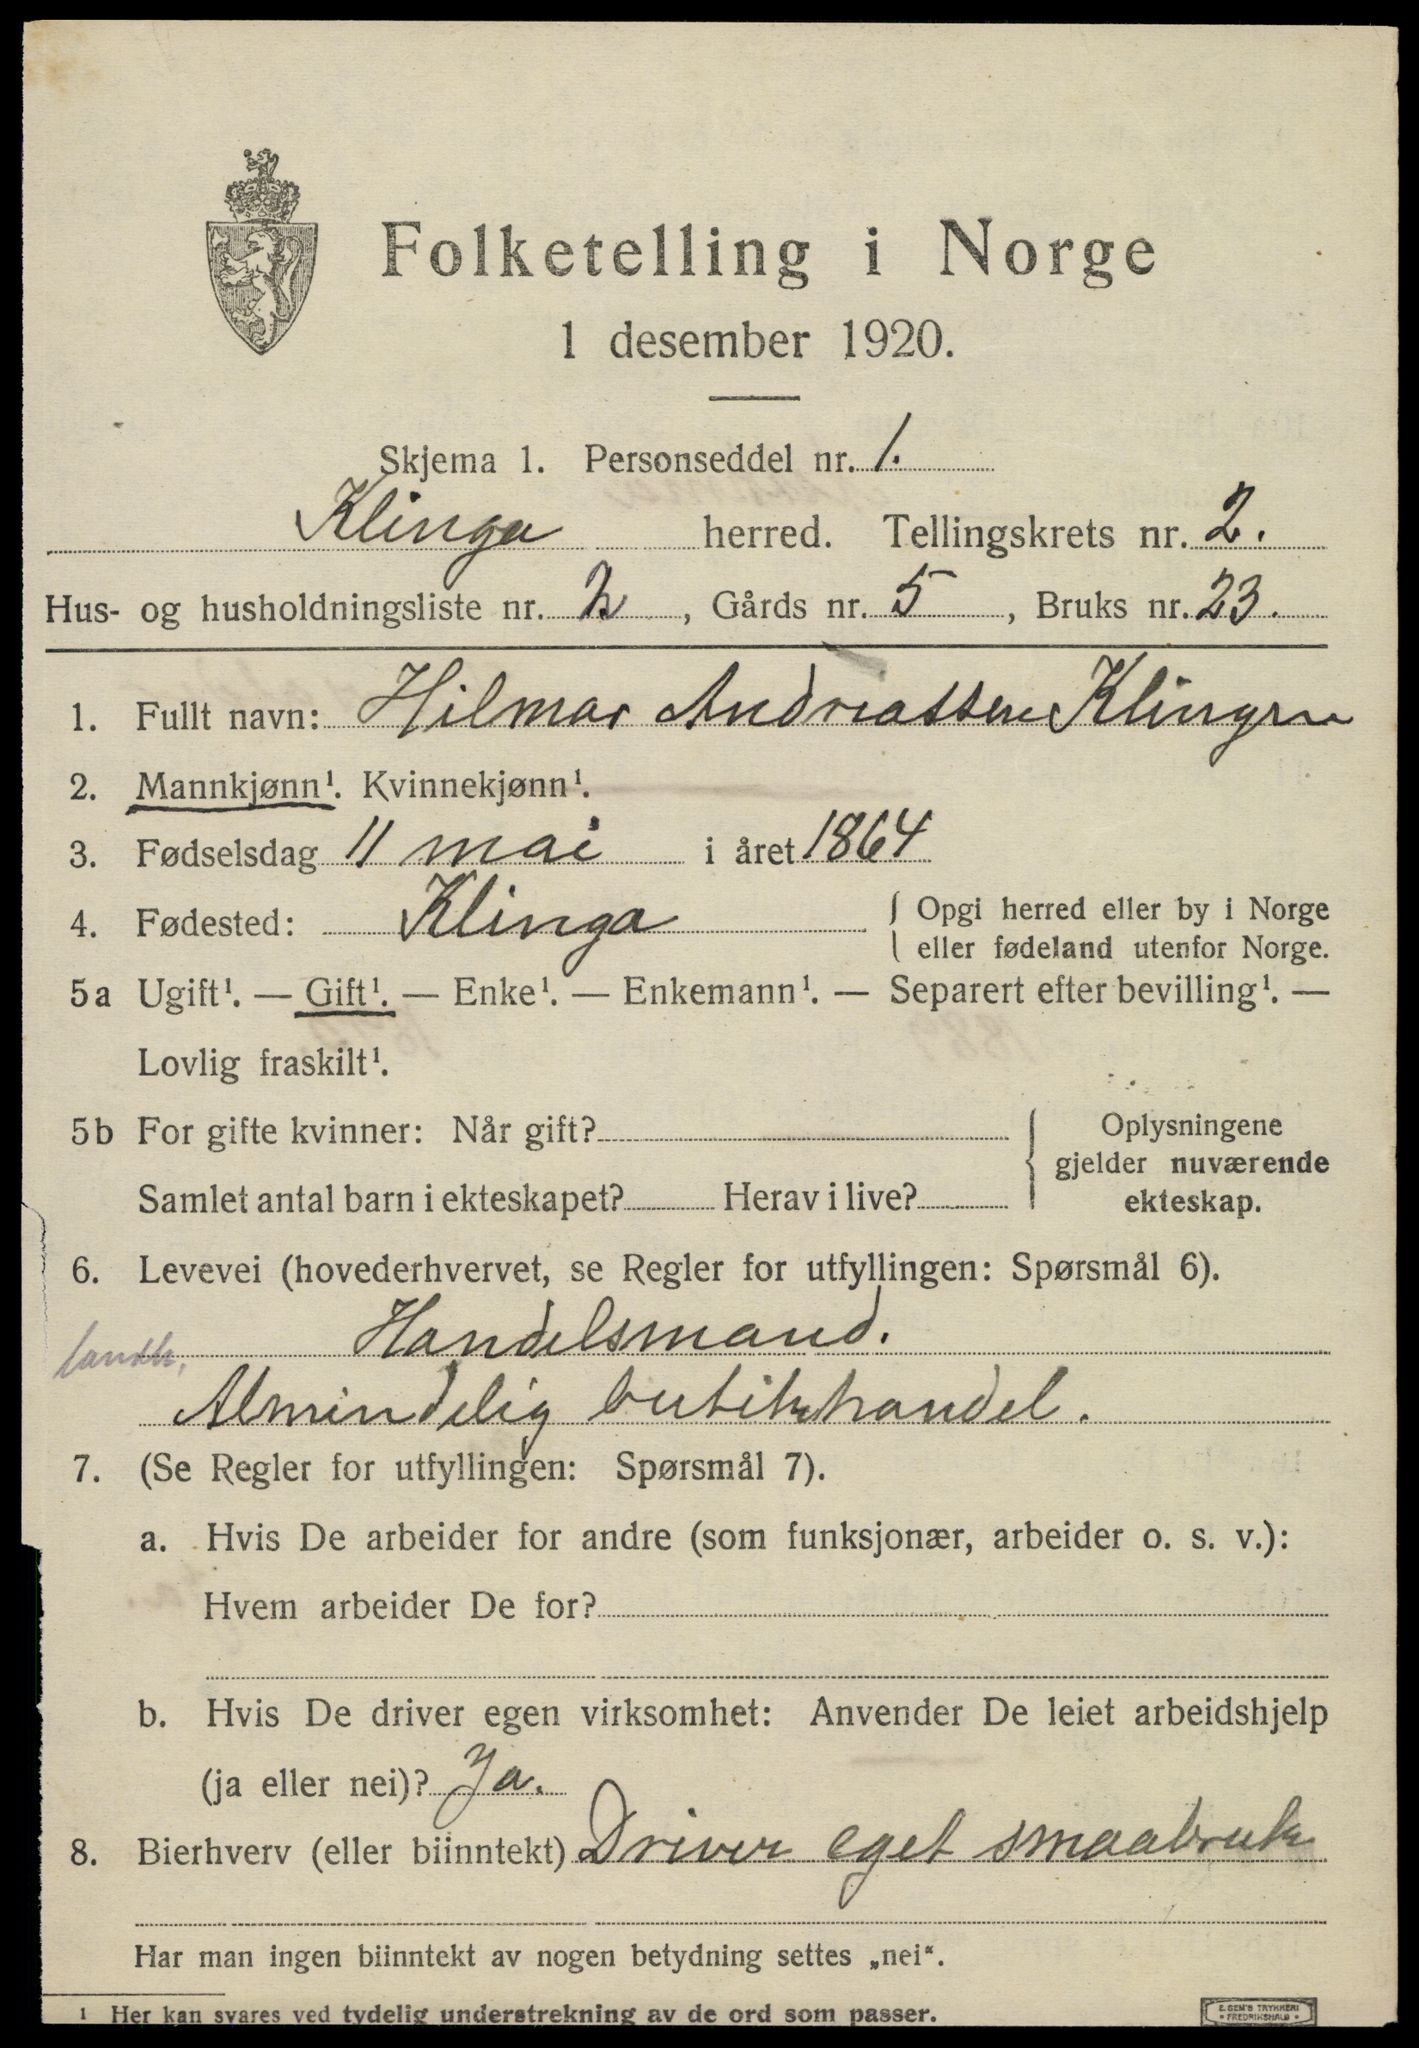 Folketelling i Norge
1 desember 1920.
Skjema 1. Personseddel nr. 1.
Klinga herred. Tellingskrets nr. 2.
Hus- og husholdningsliste nr. 2, Gårds nr. 5, Bruks nr. 23.
1. Fullt navn: Hilmar Andreassen Klingen
2. Mannkjønn¹. Kvinnekjønn¹.
3. Fødselsdag 11 mai i året 1864
4. Fødested: Klinga { Opgi herred eller by i Norge
eller fødeland utenfor Norge.
5a Ugift¹. — Gift¹. — Enke¹. — Enkemann¹. — Separert efter bevilling¹. —
Lovlig fraskilt¹.
5b For gifte kvinner: Når gift? { Oplysningene
gjelder nuværende
Samlet antal barn i ekteskapet? Herav i live? ekteskap.
6. Levevei (hovederhvervet, se Regler for utfyllingen: Spørsmål 6).
landh. Handelsmand.
Almindelig butikhandel.
7. (Se Regler for utfyllingen: Spørsmål 7).
a. Hvis De arbeider for andre (som funksjonær, arbeider o. s. v.):
Hvem arbeider De for?
b. Hvis De driver egen virksomhet: Anvender De leiet arbeidshjelp
(ja eller nei)? Ja.
8. Bierhverv (eller biinntekt) Driver eget smaabruk
Har man ingen biinntekt av nogen betydning settes „nei“.
¹ Her kan svares ved tydelig understrekning av de ord som passer.
E. SEM'S TRYKKERI
• FREDRIKSHALD •